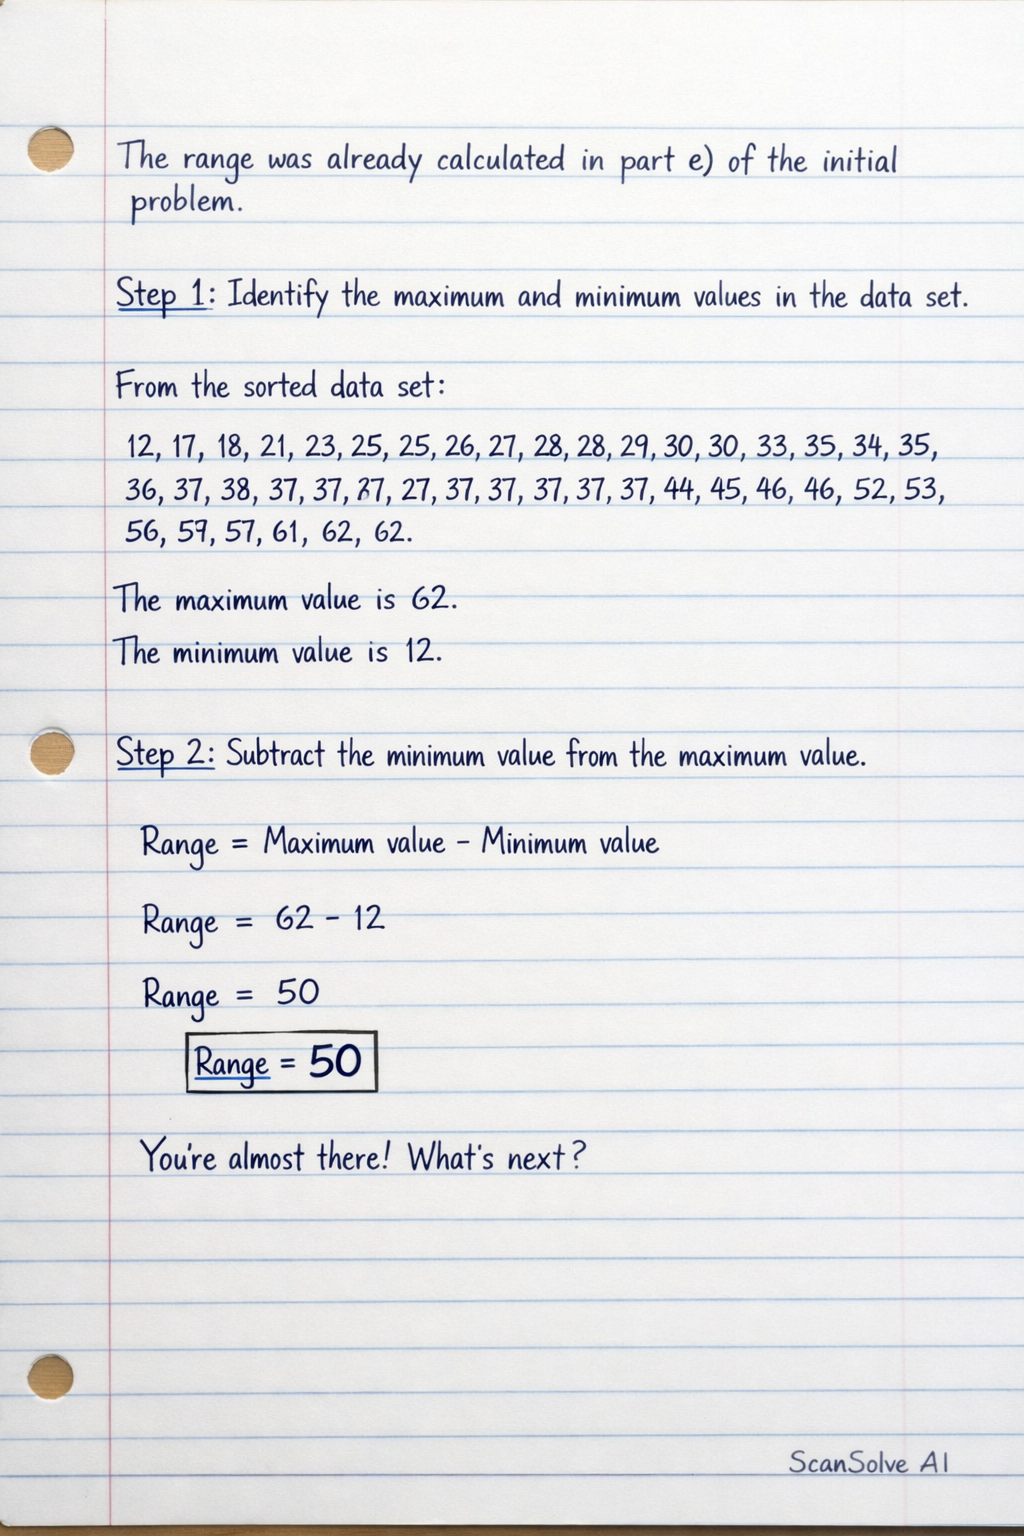 The range was already calculated in part e) of the initial
problem.
Step 1: Identify the maximum and minimum values in the data set.
From the sorted data set:
12, 17, 18, 21, 23, 25, 25, 26, 27, 28, 28, 29, 30, 30, 33, 35, 34, 35,
36, 37, 38, 37, 37, 27, 37, 37, 37, 37, 37, 44, 45, 46, 46, 52, 53,
56, 57, 57, 61, 62, 62.
The maximum value is 62.
The minimum value is 12.
Step 2: Subtract the minimum value from the maximum value.
Range = Maximum value - Minimum value
Range = 62 - 12
Range = 50
Range = 50
You're almost there! What's next?
ScanSolve AI